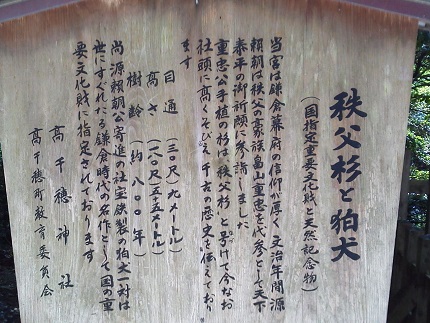 秩父杉と狛犬
（国指定重要文化財と天然記念物）
当宮は鎌倉幕府の信仰が厚く文治年間源
頼朝は秩父の豪族畠山重忠を代参として天下
泰平の御祈願に参詣しました
重忠公手植の杉は"秩父杉"と号けて今なお
社頭に高くそびえ千古の歴史を伝えており
ます
目通（三〇尺）九メートル）
高さ（一八〇尺）五五メートル）
樹齢（約八〇〇年）
尚源頼朝公寄進の社宝鉄製の狛犬一対は
世にすぐれたる鎌倉時代の名作として国の重
要文化財に指定されております
高千穂神社
高千穂町教育委員会